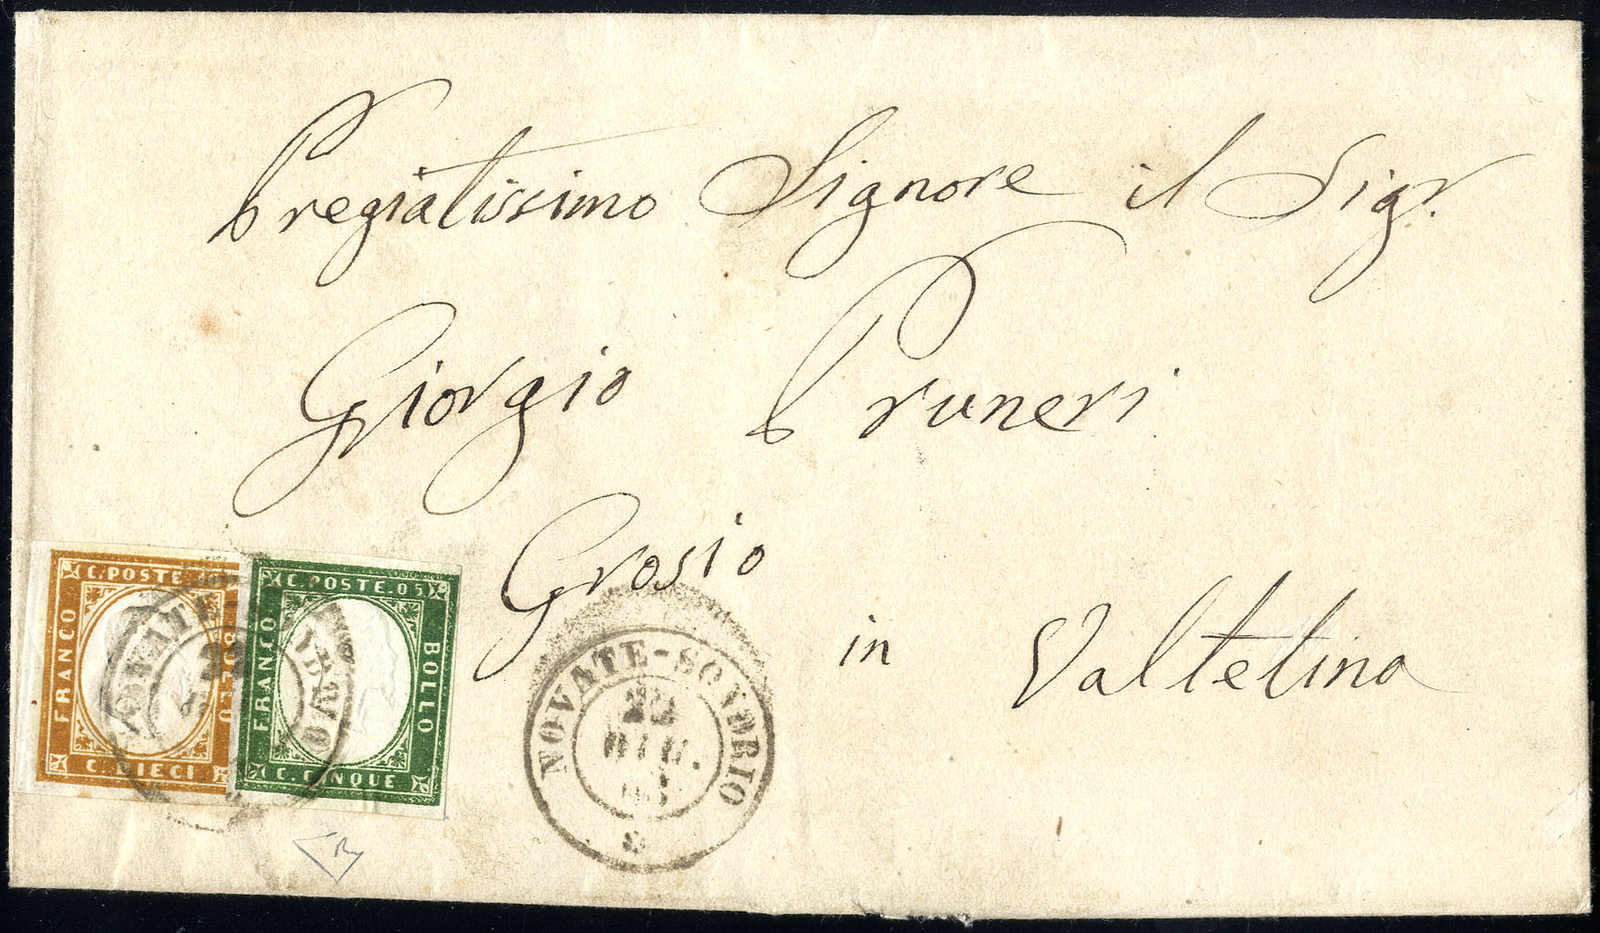 Pregiatissimo Signore il Sigr.
Giorgio Pruneri
Grosio
in Valtelina
C. POSTE
FRANCO
BOLLO
C. DIECI
C. POSTE. 05
FRANCO
BOLLO
C. CINQUE
NOVATE-SONDRIO
22
GIU.